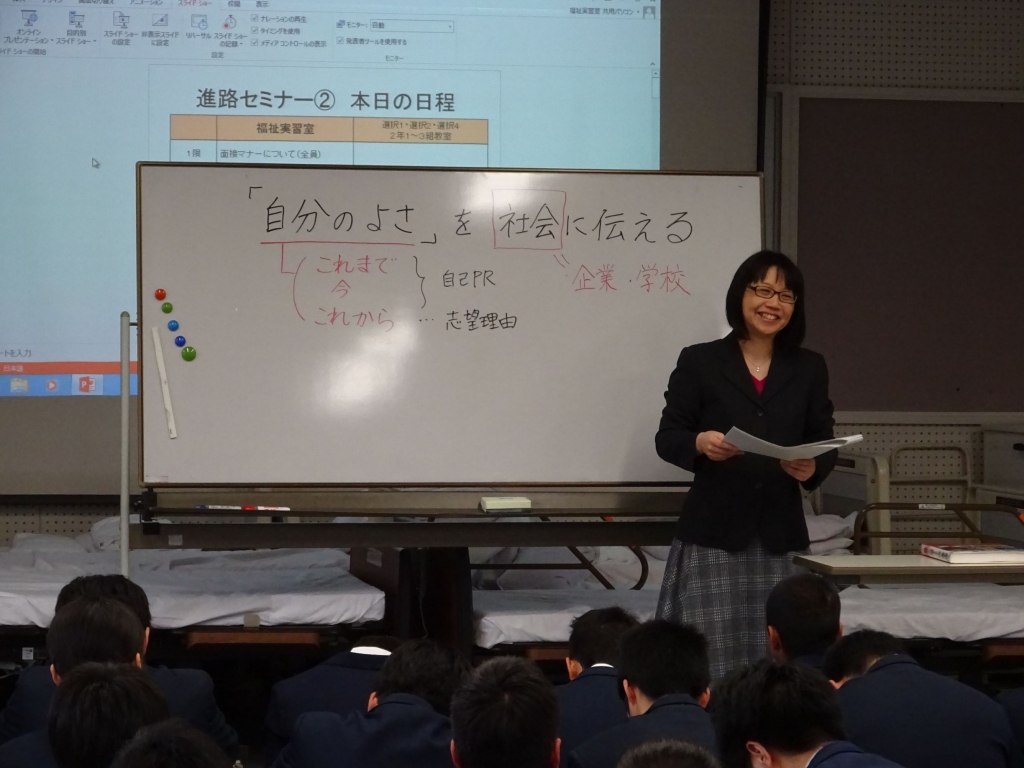 スライド ショー
表示
福祉実習室 共用パソコン
オンライン
プレゼンテーション
目的別
スライド ショー
スライド ショー
の設定
非表示スライド
に設定
リハーサル
スライド ショー
の記録
ナレーションの再生
タイミングを使用
メディア コントロールの表示
設定
モニター: 自動
発表者ツールを使用する
モニター
進路セミナー② 本日の日程
福祉実習室
選択1・選択2・選択4
2年1～3組教室
1限 面接マナーについて(全員)
「自分のよさ」を社会に伝える
これまで
今
これから
自己PR
… 志望理由
企業・学校
ートを入力
日本語